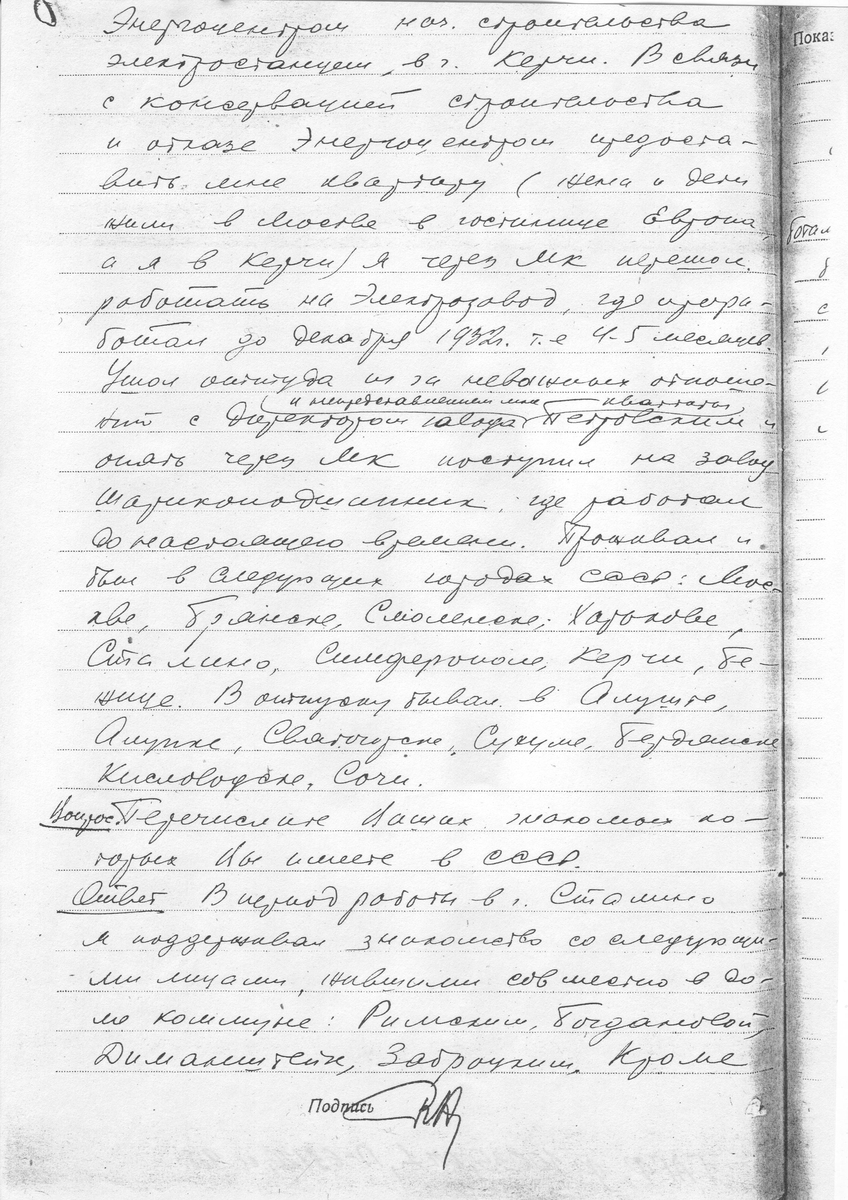 Энергоцентром нач. строительства
электростанции, в г. Керчи. В связи
с консервацией строительства
и отказе Энергоцентром предоста-
вить мне квартиру (жена и дети
жили в Москве в гостинице Европа,
а я в Керчи) я через МК перешол
работать на Электрозавод, где прора-
ботал до декабря 1932г. т.е 4-5 месяцев.
Ушол оттуда из за неважных отноше-
и непредставлением мне квартиры
ний с директором завода Петровским и
опять через МК поступил на завод
Шарикоподшипник, где работал
до настоящего времени. Проживал и
был в следующих городах СССР: Мос-
кве, Брянске, Смоленске, Харькове,
Сталино, Симферополе, Керчи, Бе-
жице. В отпуску бывал в Алуште,
Алупке, Святогорске, Сухуме, Бердянске
Кисловодске, Сочи.
Вопрос Перечислите Ваших знакомых ко-
торых Вы имеете в СССР.
Ответ В период работы в г. Сталино
я поддерживал знакомство со следующи-
ми лицами, жившими совместно в до-
ме коммуне: Римским, Богдановой,
Диманштейн, Заброцким. Кроме
Подпись
Показ
ботал